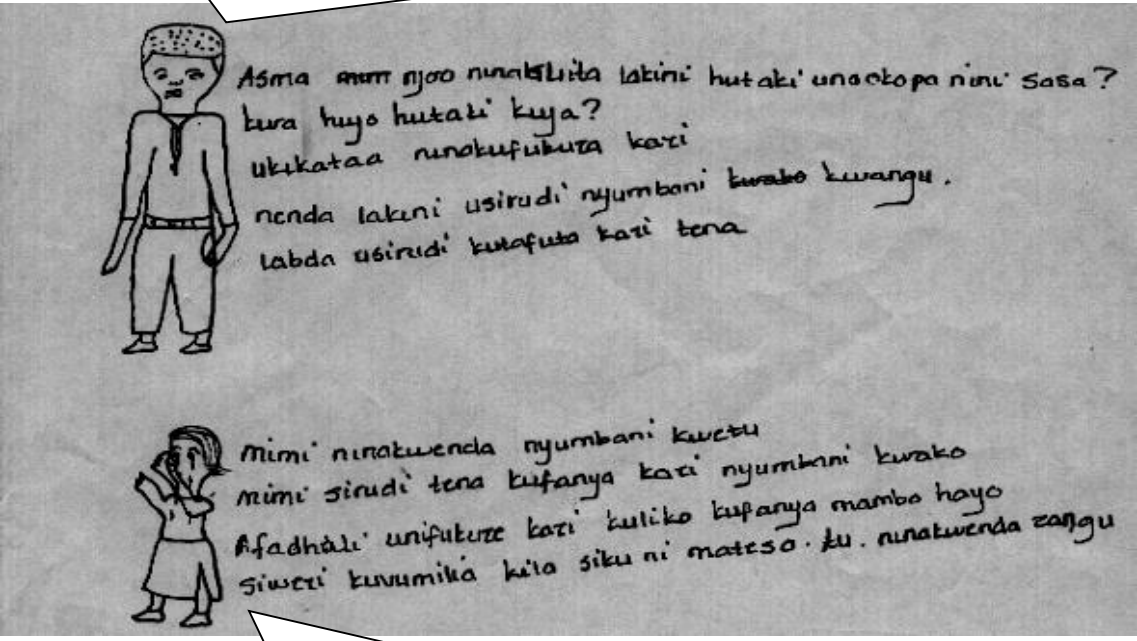 Asma njoo ninakwita lakini hutaki unaokopa nini sasa?
kura huyo hutaki kuja?
ukikataa ninakufukuza kazi
nenda lakini usirudi nyumbani kwako kwangu.
labda usirudi kutafuta kazi tena
mimi ninakwenda nyumbani kwetu
mimi sirudi tena kufanya kazi nyumbani kwako
Afadhali unifukuze kazi kuliko kufanya mambo hayo
siwezi kuvumilia kila siku ni mateso. tu. ninakwenda zangu